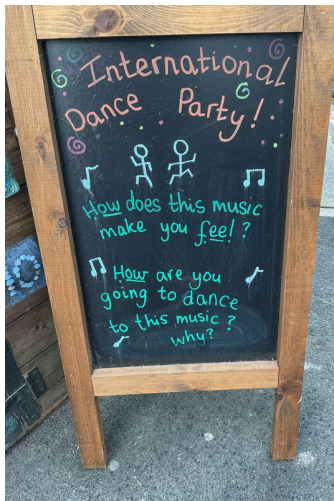 International
Dance Party!
How does this music
make you feel?
How are you
going to dance
to this music?
why?